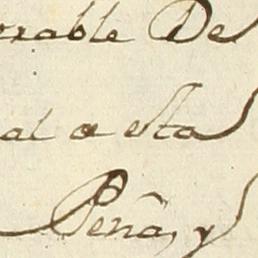 rrable De
al a esta
Peña, y